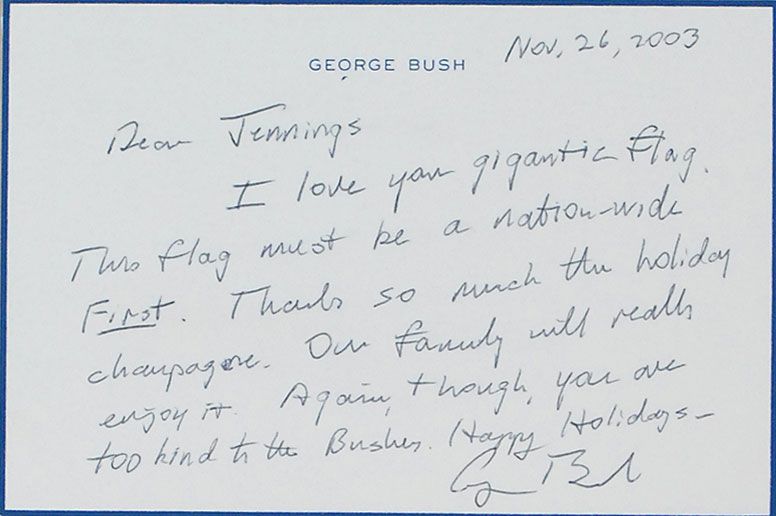 GEORGE BUSH
Nov, 26, 2003
Dear Jennings
I love your gigantic flag.
This flag must be a nation-wide
First. Thanks so much the holiday
champagne. Our family will really
enjoy it. Again, though, you are
too kind to the Bushes. Happy Holidays-
G Bush